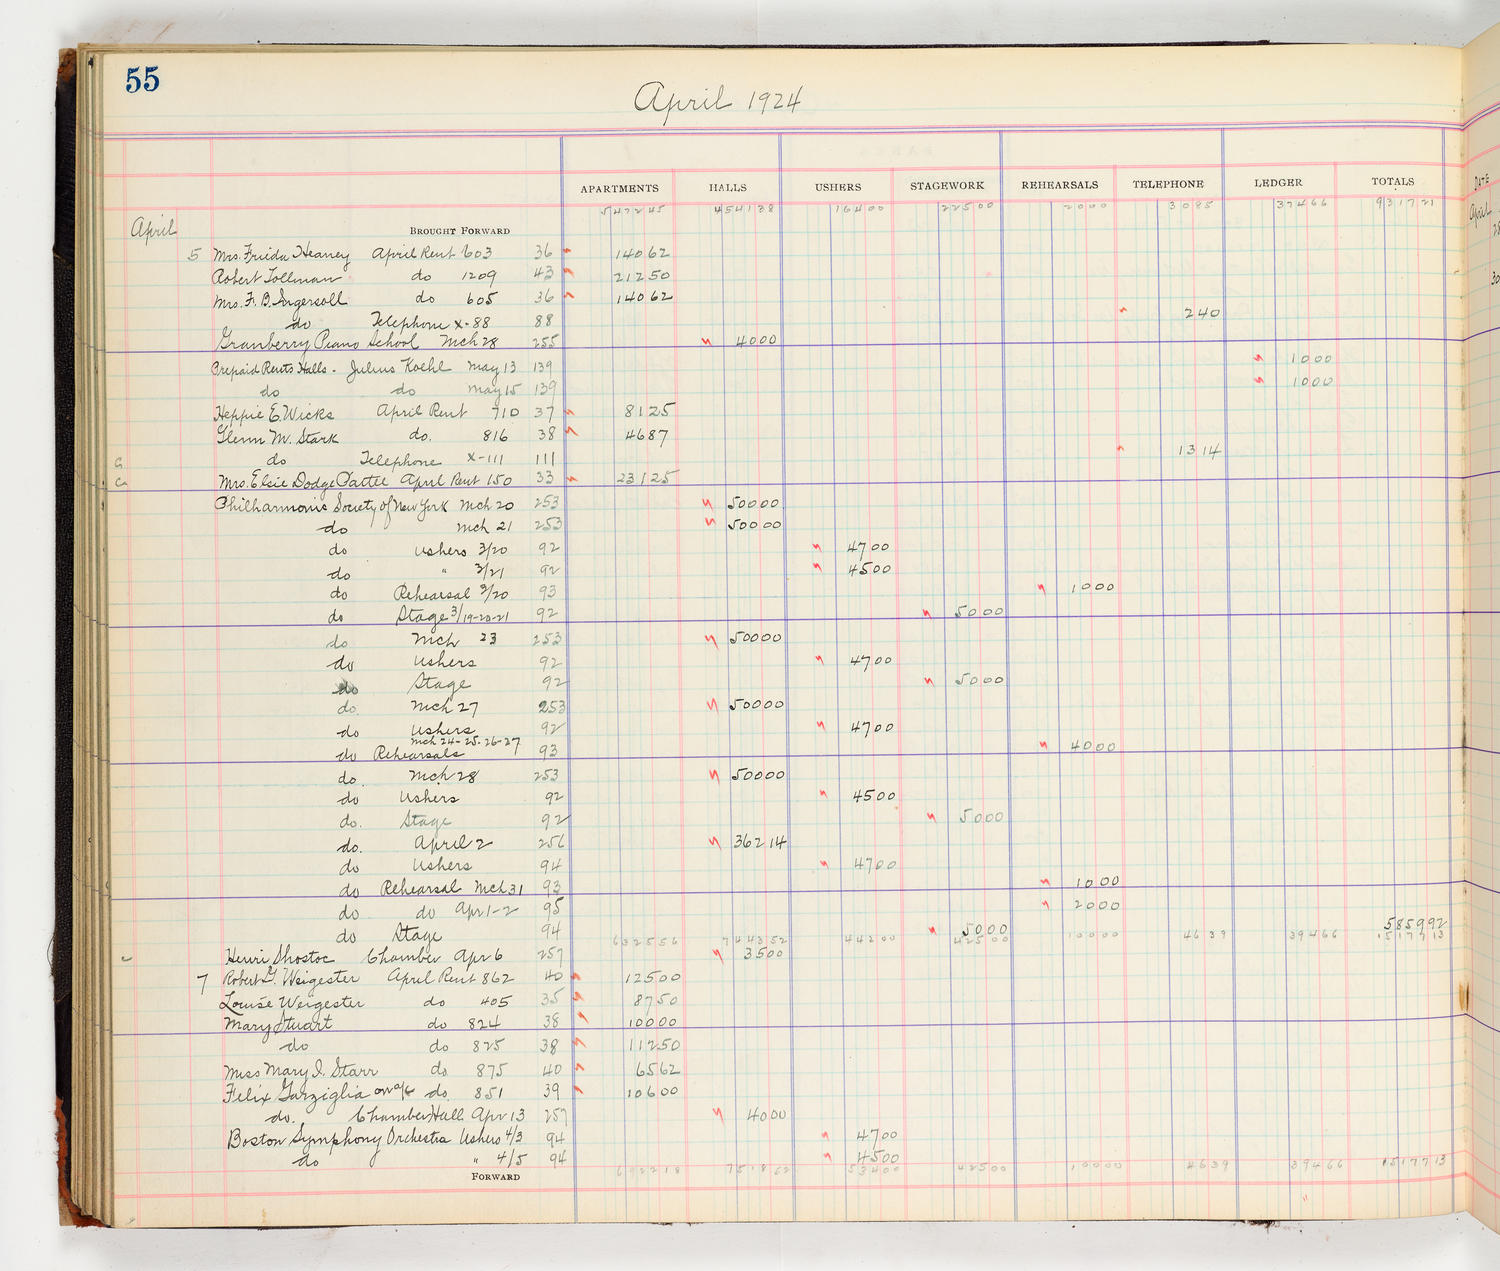 55
April 1924
APARTMENTS HALLS USHERS STAGEWORK REHEARSALS TELEPHONE LEDGER TOTALS
547245 454138 16400 22500 2000 3085 37466 931721
April BROUGHT FORWARD
5 Mrs. Frieda Heaney April Rent 603 36 14062
Robert Tollman do 1209 43 21250
Mrs. F. B. Ingersoll do 605 36 14062
do Telephone X-88 88 240
Granberry Piano School Mch 28 255 4000
Prepaid Rents Halls - Julius Koehl May 13 139 1000
do do May 15 139 1000
Heppie E. Wicks April Rent 710 37 8125
Glenn M. Stark do. 816 38 4687
do Telephone X-111 111 1314
Mrs. Elsie Dodge Pattee April Rent 150 33 23125
Philharmonic Society of New York Mch 20 253 50000
do Mch 21 253 50000
do Ushers 3/20 92 4700
do " 3/21 92 4500
do Rehearsal 3/20 93 1000
do Stage 3/19-20-21 92 5000
do Mch 23 253 50000
do Ushers 92 4700
do Stage 92 5000
do. Mch 27 253 50000
do Ushers 92 4700
do Rehearsals Mch 24-25-26-27 93 4000
do. Mch 28 253 50000
do Ushers 92 4500
do. Stage 92 5000
do. April 2 256 36214
do Ushers 94 4700
do Rehearsal Mch 31 93 1000
do do Apr 1-2 95 2000
do Stage 94 5000 585992
632556 744352 44200 42500 10000 4639 39466 1517713
Henri Chamber Apr 6 257 3500
7 Robert G. Weigester April Rent 862 40 12500
Louise Weigester do 405 35 8750
Mary Stuart do 824 38 10000
do do 825 38 11250
Miss Mary I. Starr do 875 40 6562
Felix Garziglia on a/c do. 851 39 10600
do. Chamber Hall Apr 13 257 4000
Boston Symphony Orchestra Ushers 4/3 94 4700
do " 4/5 94 4500
FORWARD 692218 751862 53400 42500 10000 4639 39466 1517713
DATE
April
28
30